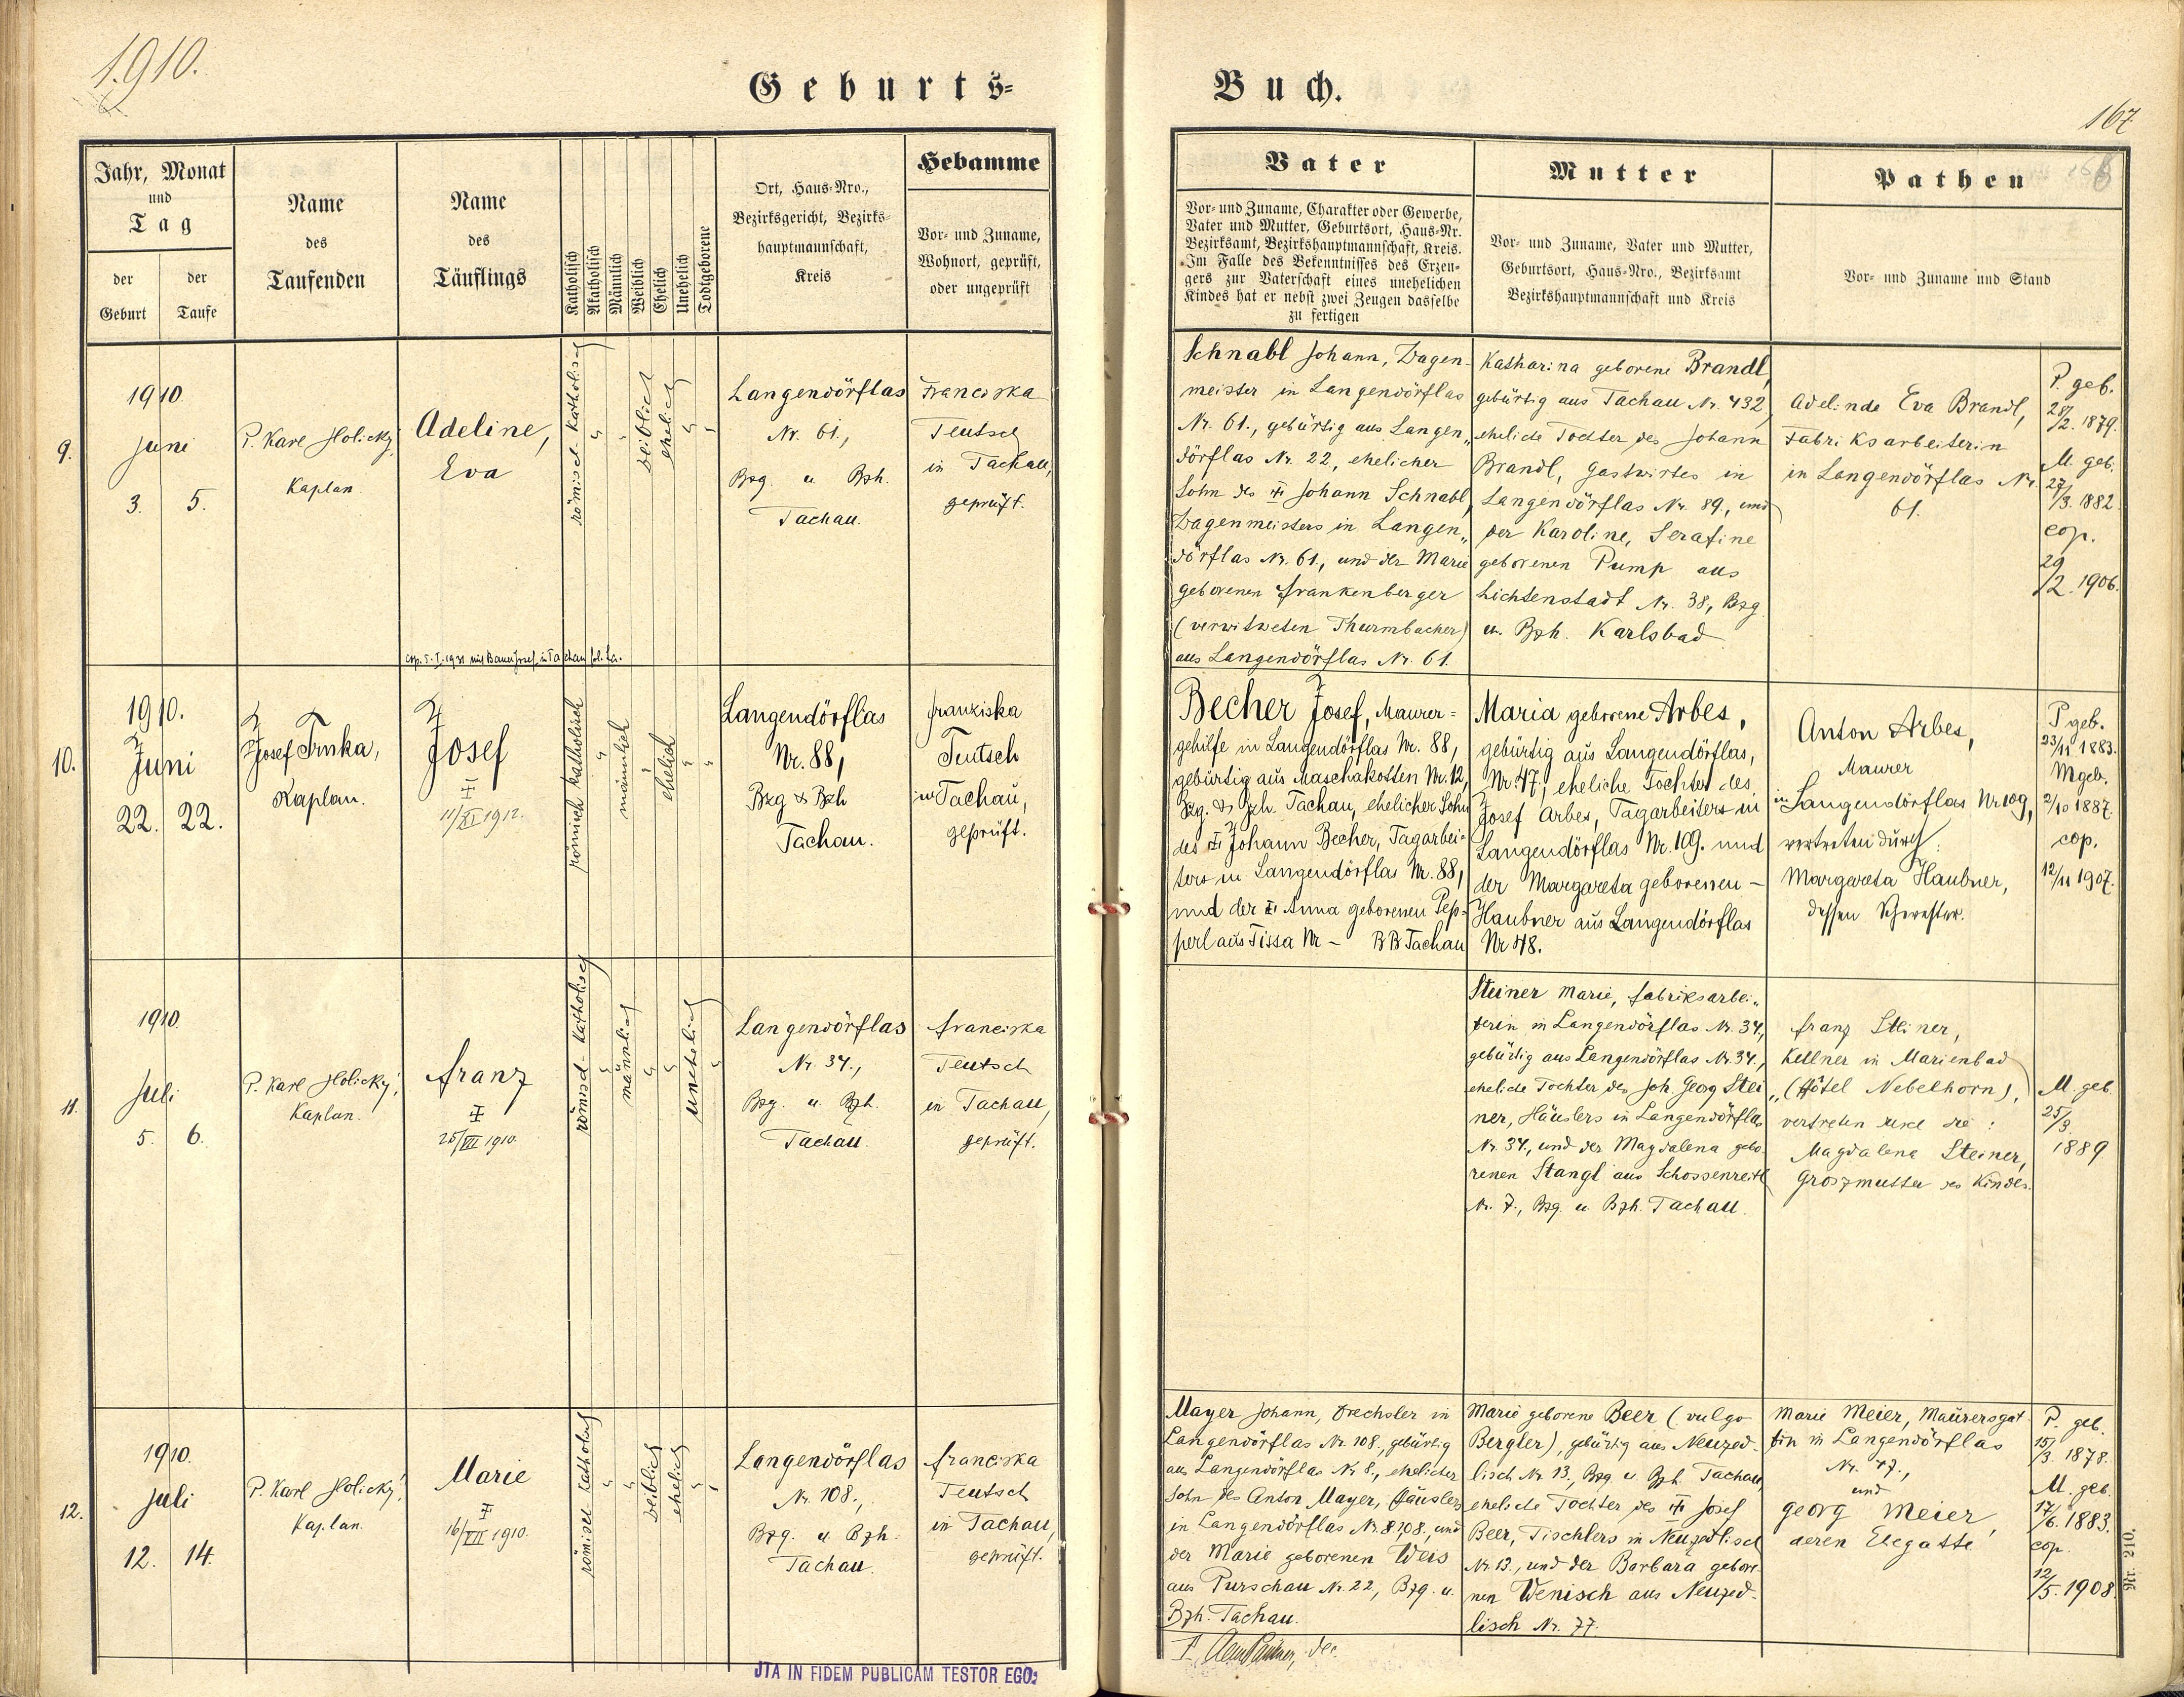 1910.
Geburts-
Buch.
167
Jahr, Monat
und
Tag
der
Geburt
der
Taufe
Name
des
Taufenden
Name
des
Täuflings
Katholisch
Akatholisch
Männlich
Weiblich
Ehelich
Unehelich
Todtgeborene
Ort, Haus-Nro.,
Bezirksgericht, Bezirks-
hauptmannschaft,
Kreis
Hebamme
Vor- und Zuname,
Wohnort, geprüft,
oder ungeprüft
Vater
Vor- und Zuname, Charakter oder Gewerbe,
Vater und Mutter, Geburtsort, Haus-Nr.
Bezirksamt, Bezirkshauptmannschaft, Kreis.
Im Falle des Bekenntnisses des Erzeu-
gers zur Vaterschaft eines unehelichen
Kindes hat er nebst zwei Zeugen dasselbe
zu fertigen
Mutter
Vor- und Zuname, Vater und Mutter,
Geburtsort, Haus-Nro., Bezirksamt
Bezirkshauptmannschaft und Kreis
Pathen
Vor- und Zuname und Stand
9.
1910.
Juni
3. 5.
P. Karl Holický,
Kaplan.
Adeline,
Eva
cop. 5. I. 1931 mit Bauer Josef in Tachau
römisch-katholisch
weiblich
ehelich
Langendörflas
Nr. 61.,
Bzg. u. Bzh.
Tachau.
Franciska
Teutsch
in Tachau,
geprüft.
Schnabl Johann, Wagen-
meister in Langendörflas
Nr. 61., gebürtig aus Langen„
dörflas Nr. 22, ehelicher
Sohn des ♰ Johann Schnabl,
Wagenmeisters in Langen„
dörflas Nr. 61., und der Marie
geborenen Frankenberger
(verwitweten Thurmbacher)
aus Langendörflas Nr. 61.
Katharina geborene Brandl,
gebürtig aus Tachau Nr. 432,
eheliche Tochter des Johann
Brandl, Gastwirtes in
Langendörflas Nr. 89, und
der Karoline, Serafine
geborenen Pump aus
Lichtenstadt Nr. 38, Bzg.
u. Bzh. Karlsbad
Adelinde Eva Brandl,
Fabriksarbeiterin
in Langendörflas Nr.
61.
P. geb.
28/2. 1879.
M. geb.
27/3. 1882.
cop.
29/2. 1906.
10.
1910.
Juni
22. 22.
Josef Trnka,
Kaplan.
Josef
♰
11/XI 1912.
römisch katholisch
männlich
ehelich
Langendörflas
Nr. 88,
Bzg & Bzh
Tachau.
Franziska
Teutsch
in Tachau,
geprüft.
Becher Josef, Maurer-
gehilfe in Langendörflas Nr. 88,
gebürtig aus Maschakotten Nr. 12,
Bzg. & Bzh. Tachau, ehelicher Sohn
des ♰ Johann Becher, Tagarbei-
ters in Langendörflas Nr. 88,
und der ♰ Anna geborenen Pep-
perl aus Tissa Nr – BB Tachau
Maria geborene Arbes,
gebürtig aus Langendörflas,
Nr. 47, eheliche Tochter des
Josef Arbes, Tagarbeiters in
Langendörflas Nr. 109. und
der Margareta geborenen –
Haubner aus Langendörflas
Nr 48.
Anton Arbes,
Maurer
in Langendörflas Nr 109,
vertreten durch:
Margareta Haubner,
dessen Schwester.
P geb.
23/11 1883.
M geb.
2/10 1887.
cop.
12/11 1907.
11.
1910.
Juli
5. 6.
P. Karl Holický,
Kaplan.
Franz
♰
25/VII 1910.
römisch-katholisch
männlich
unehelich
Langendörflas
Nr. 34.,
Bzg. u. Bzh.
Tachau.
Franciska
Teutsch
in Tachau,
geprüft.
Steiner Marie, Fabriksarbei„
terin in Langendörflas Nr. 34.,
gebürtig aus Langendörflas Nr. 34.,
eheliche Tochter des Joh Georg Stei„
ner, Häuslers in Langendörflas
Nr. 34., und der Magdalena gebo„
renen Stangl aus Schossenreith
Nr. 7., Bzg. u. Bzh. Tachau.
Franz Steiner,
Kellner in Marienbad
(Hôtel Nebelhorn),
vertreten durch die:
Magdalena Steiner,
Groszmutter des Kindes.
M. geb.
25/3.
1889
12.
1910.
Juli
12. 14.
P. Karl Holický,
Kaplan.
Marie
♰
16/VII 1910.
römisch-katholisch
weiblich
ehelich
Langendörflas
Nr. 108.,
Bzg. u. Bzh.
Tachau.
Franciska
Teutsch
in Tachau,
geprüft.
Mayer Johann, Drechsler in
Langendörflas Nr. 108., gebürtig
aus Langendörflas Nr. 8., ehelicher
Sohn des Anton Mayer, Häuslers
in Langendörflas Nr. 108., und
der Marie geborenen Weis
aus Purschau Nr. 22, Bzg. u.
Bzh. Tachau.
Marie geborene Beer (vulgo
Bergler), gebürtig aus Neuzed-
lisch Nr. 13., Bzg. u. Bzh. Tachau,
eheliche Tochter des ♰ Josef
Beer, Tischlers in Neuzedlisch
Nr. 13., und der Barbara gebore-
nen Wenisch aus Neuzed-
lisch Nr. 77.
Marie Meier, Maurersgat
tin in Langendörflas
Nr. 47.,
und
Georg Meier,
deren Ehegatte
P. geb.
15/3. 1878.
M. geb.
17/6. 1883.
cop.
12/5. 1908.
Nr. 210.
JTA IN FIDEM PUBLICAM TESTOR EGO: